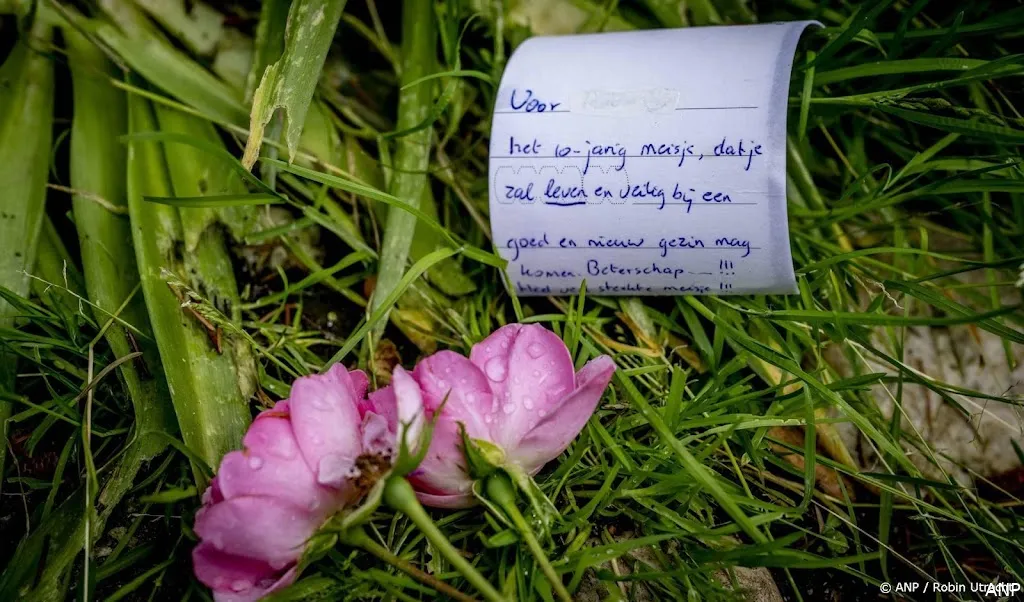 Voor
het 10-jarig meisje, dat je
zal leven en veilig bij een
goed en nieuw gezin mag
komen. Beterschap --- !!!
sterkte meisje !!!
© ANP / Robin Utrecht
ANP